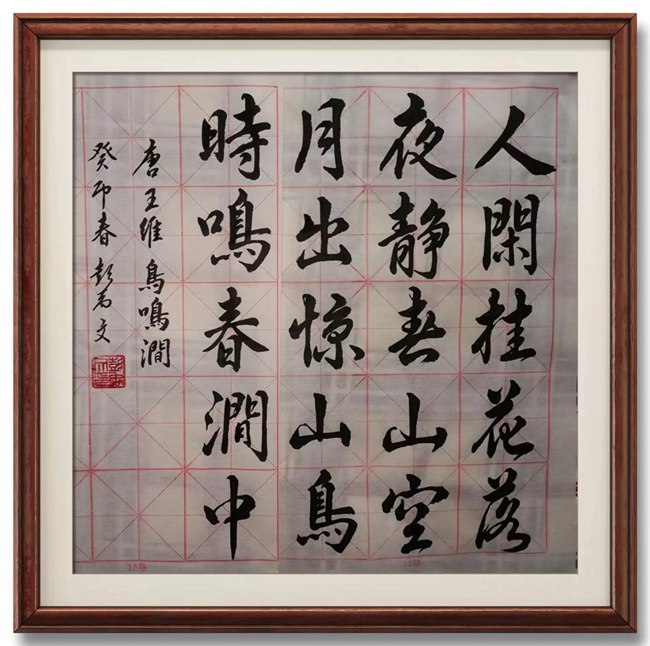 人閑桂花落
夜静春山空
月出惊山鳥
時鳴春澗中
唐王維鳥鳴澗
癸卯春彭文
15格
15格